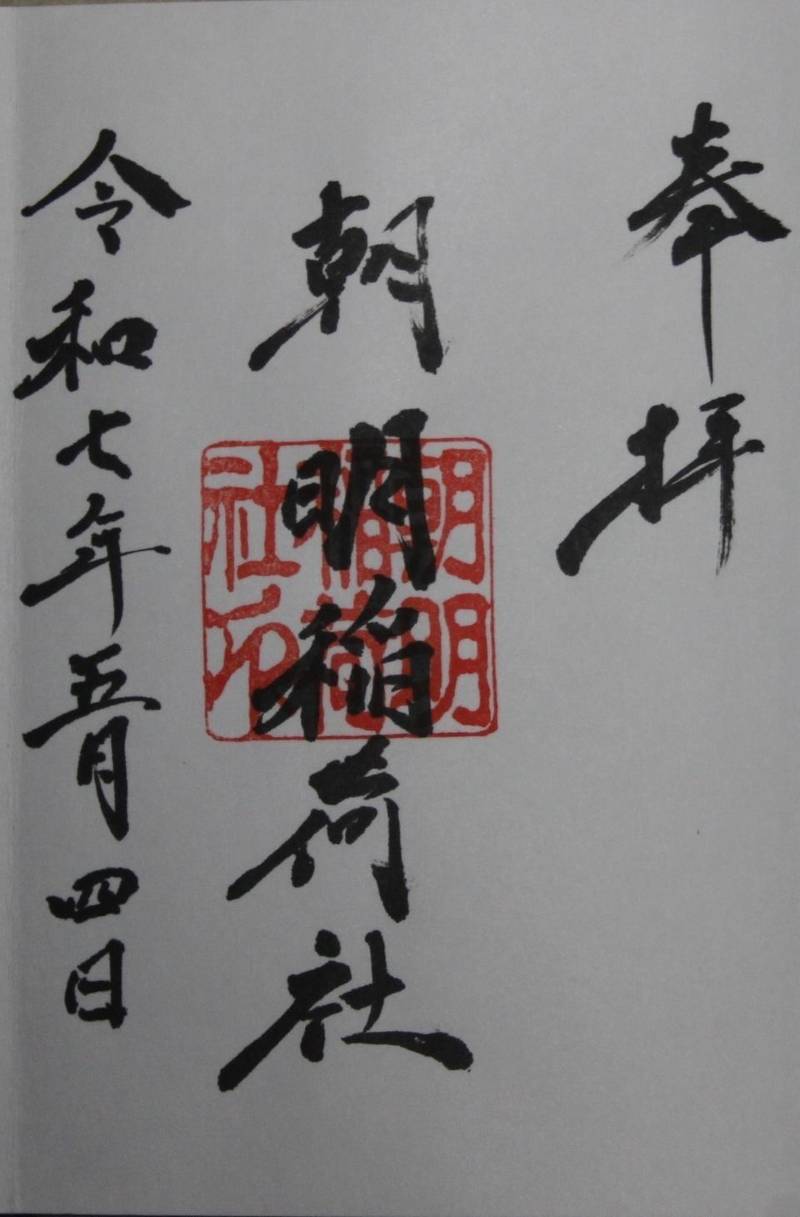 奉拝
朝明稲荷社
朝明稲荷社印
令和七年五月四日